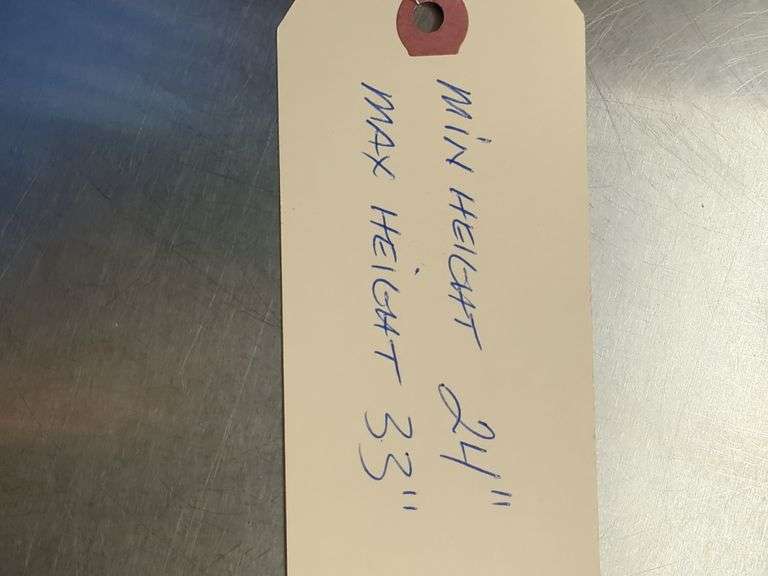 MiN HEIGHT 24"
MAX HEiGHT 33"